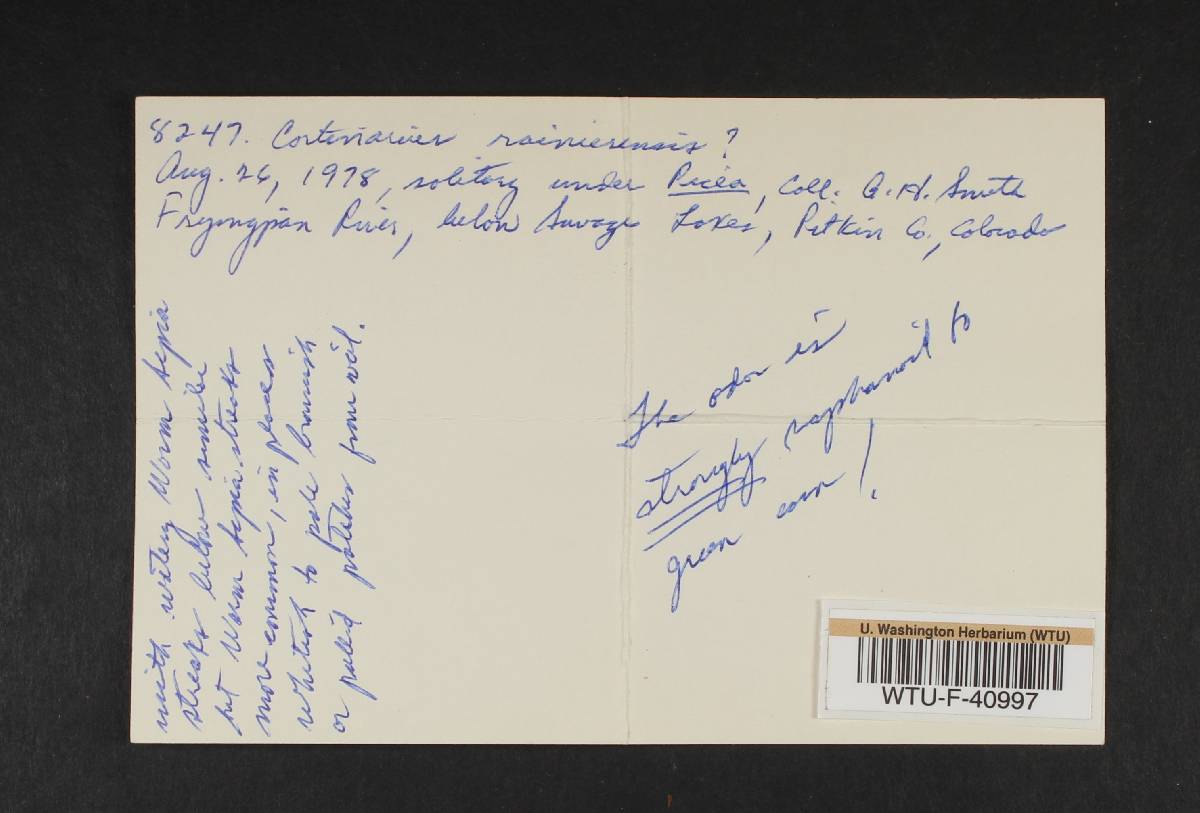 8247. Cortinarius rainierensis?
Aug. 26, 1978, solitary under Picea, Coll. A. H. Smith
Fryingpan River, below Savage Lakes, Pitkin Co., Colorado
with watery Warm sepia
streaks below similar
but Warm sepia streaks
more common, in places
whitish to pale brownish
or pallid patches from veil.
The odor is
strongly raphanoid to
green corn!
U. Washington Herbarium (WTU)
WTU-F-40997